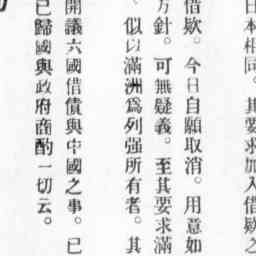 日本相同。其要求加入借款之
借欵。今日自願取消。用意如
方針。可無疑義。至其要求滿
似以滿洲爲列强所有者。其
開議六國借債與中國之事。已
已歸國與政府商酌一切云。